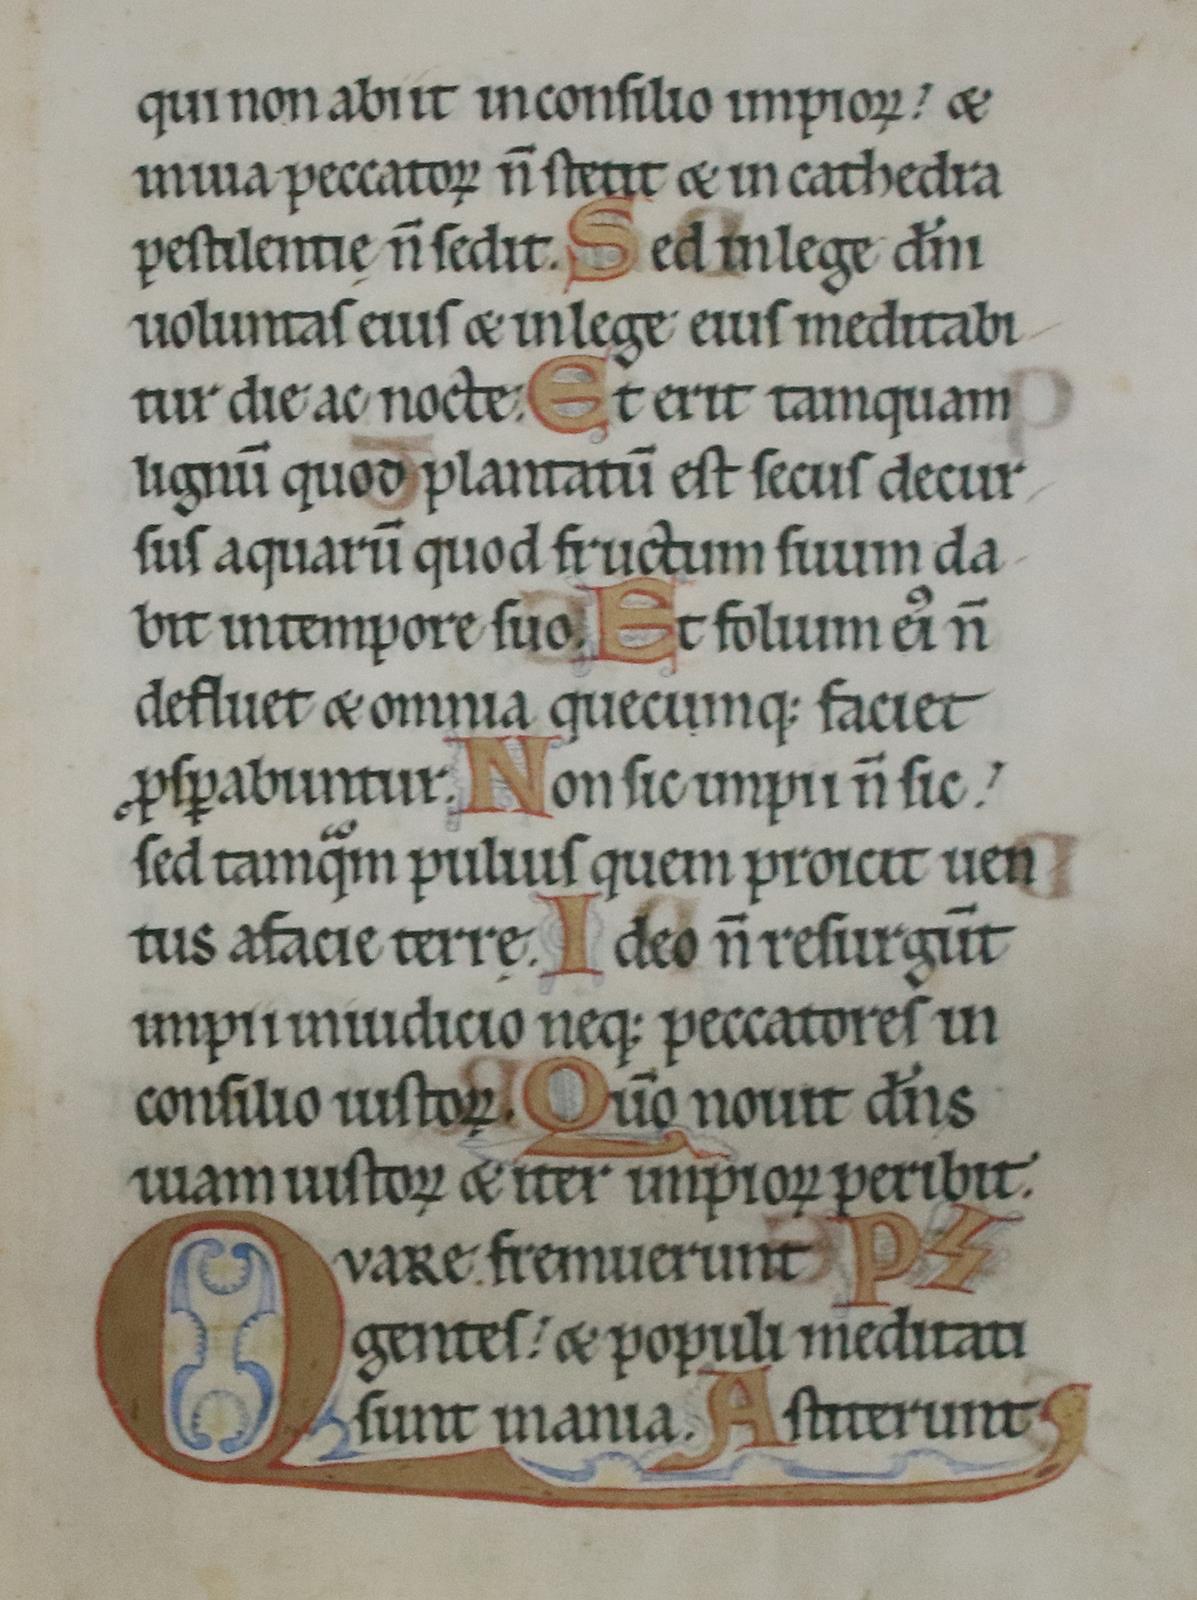 qui non abiit in consilio impioꝝ. &
in uia peccatoꝝ n̄ stetit & in cathedra
pestilentię n̄ sedit. Sed in lege dn̄i
uoluntas eius & in lege eius meditabi
tur die ac nocte. Et erit tamquam
lignū quod plantatū est secus decur
sus aquarū quod fructum suum da
bit in tempore suo. Et folium eiꝰ n̄
defluet & omnia quecumq; faciet
ꝓsꝑabuntur. Non sic impii n̄ sic.
sed tamqᵃm puluis quem proicit uen
tus a facie terrę. Ideo n̄ resurgūt
impii in iudicio neq; peccatores in
consilio iustoꝝ. Qūo nouit dn̄s
uiam iustoꝝ & iter impioꝝ peribit.
QVARE fremuerunt PS
gentes. & populi meditati
sunt inania. Astiterunt